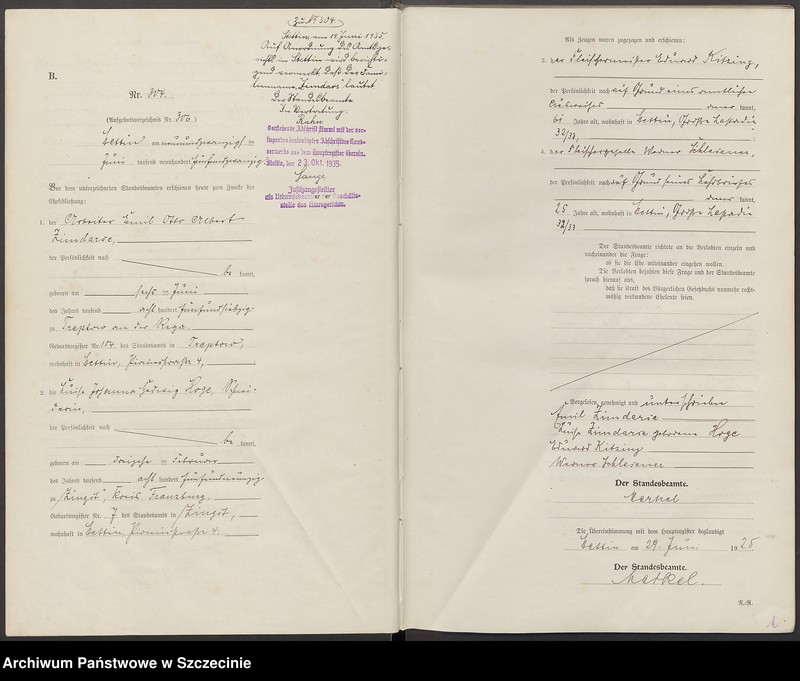 B.
Nr. 304.
(Aufgebotsverzeichnis Nr. 306)
Stettin am neunundzwanzigsten
Juni tausend neunhundert fünfundzwanzig.
Vor dem unterzeichneten Standesbeamten erschienen heute zum Zwecke der
Eheschließung:
1. der Arbeiter Emil Otto Albert
Zimdarse,
der Persönlichkeit nach
be kannt,
geboren am sechsten Juni
des Jahres tausend acht hundert fünfundsiebzig
zu Treptow an der Rega.
Geburtsregister Nr. 104 des Standesamts in Treptow,
wohnhaft in Stettin, 4,
2. die Luise Johanna Hedwig Hoge,
der Persönlichkeit nach
be kannt,
geboren am Februar
des Jahres tausend acht hundert fünfundneunzig
zu Zingst, Kreis Franzburg,
Geburtsregister Nr. 7 des Standesamts in Zingst,
wohnhaft in Stettin, 4.
Zu Nr 304.
Stettin, am 19. Juni 1935.
Auf Anordnung des Amtsge-
richts in Stettin wird berichti-
gend vermerkt, daß der Fami-
lienname „Zimdars" lautet
Der Standesbeamte
In Vertretung.
Rahn
Vorstehende Abschrift stimmt mit der vor-
liegenden beglaubigten Abschrift des Rand-
vermerks aus dem Hauptregister überein.
Stettin, den 23. Okt. 1935.
Lange
Justizangestellter
als Urkundsbeamter der Geschäfts-
stelle des Amtsgerichts.
Als Zeugen waren zugezogen und erschienen:
3. der Fleischermeister Eduard Kitzing,
der Persönlichkeit nach auf Grund eines amtlichen
Ausweises aner kannt,
61 Jahre alt, wohnhaft in Stettin, Große Lastadie
32/33,
4. der Fleischergeselle Werner Schleiener,
der Persönlichkeit nach auf Grund seines Lehrbriefes
aner kannt,
25 Jahre alt, wohnhaft in Stettin, Große Lastadie
32/33
Der Standesbeamte richtete an die Verlobten einzeln und
nacheinander die Frage:
ob sie die Ehe miteinander eingehen wollen.
Die Verlobten bejahten diese Frage und der Standesbeamte
sprach hierauf aus,
daß sie kraft des Bürgerlichen Gesetzbuchs nunmehr recht-
mäßig verbundene Eheleute seien.
Vorgelesen, genehmigt und unterschrieben
Emil Zimdarse
Luise Zimdarse geborene Hoge
Eduard Kitzing
Werner Schleiener
Der Standesbeamte.
Merkel
Die Übereinstimmung mit dem Hauptregister beglaubigt
Stettin am 29. Juni 1925
Der Standesbeamte.
Merkel.
R.-R.
Archiwum Państwowe w Szczecinie